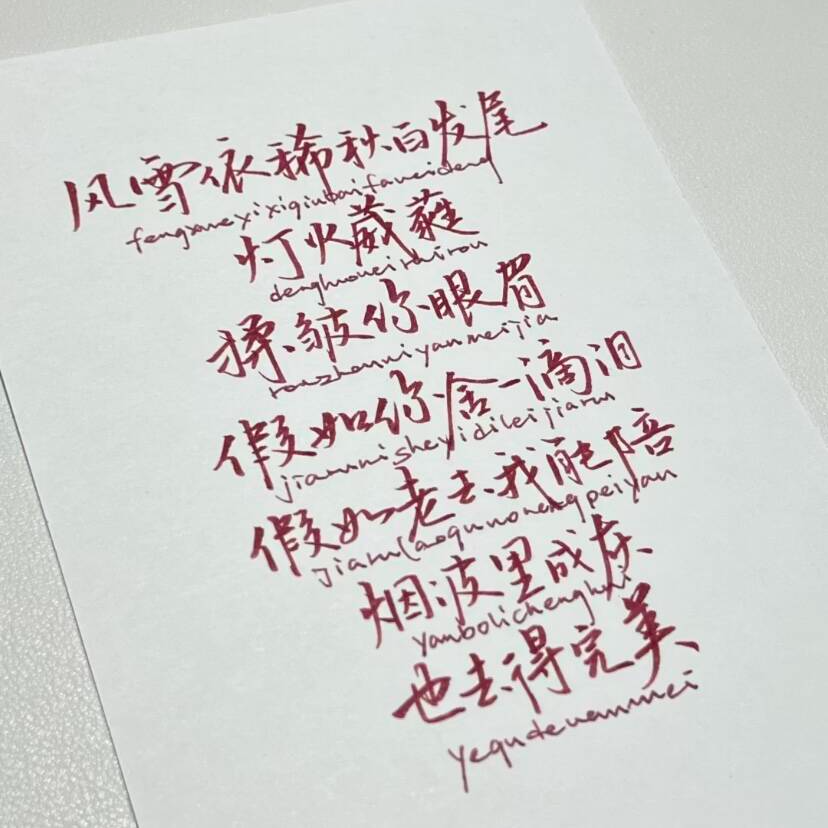 风雪依稀秋白发尾
fengxueyixiqiubaifaweideng
灯火葳蕤
denghuoweiruirou
揉皱你眼眉
rouzhouniyanmeijia
假如你舍一滴泪
jiarunisheyidileijiaru
假如老去我能陪
jiarulaoquwonengpeiyan
烟波里成灰
yanbolichenghui
也去得完美
yequdewanmei